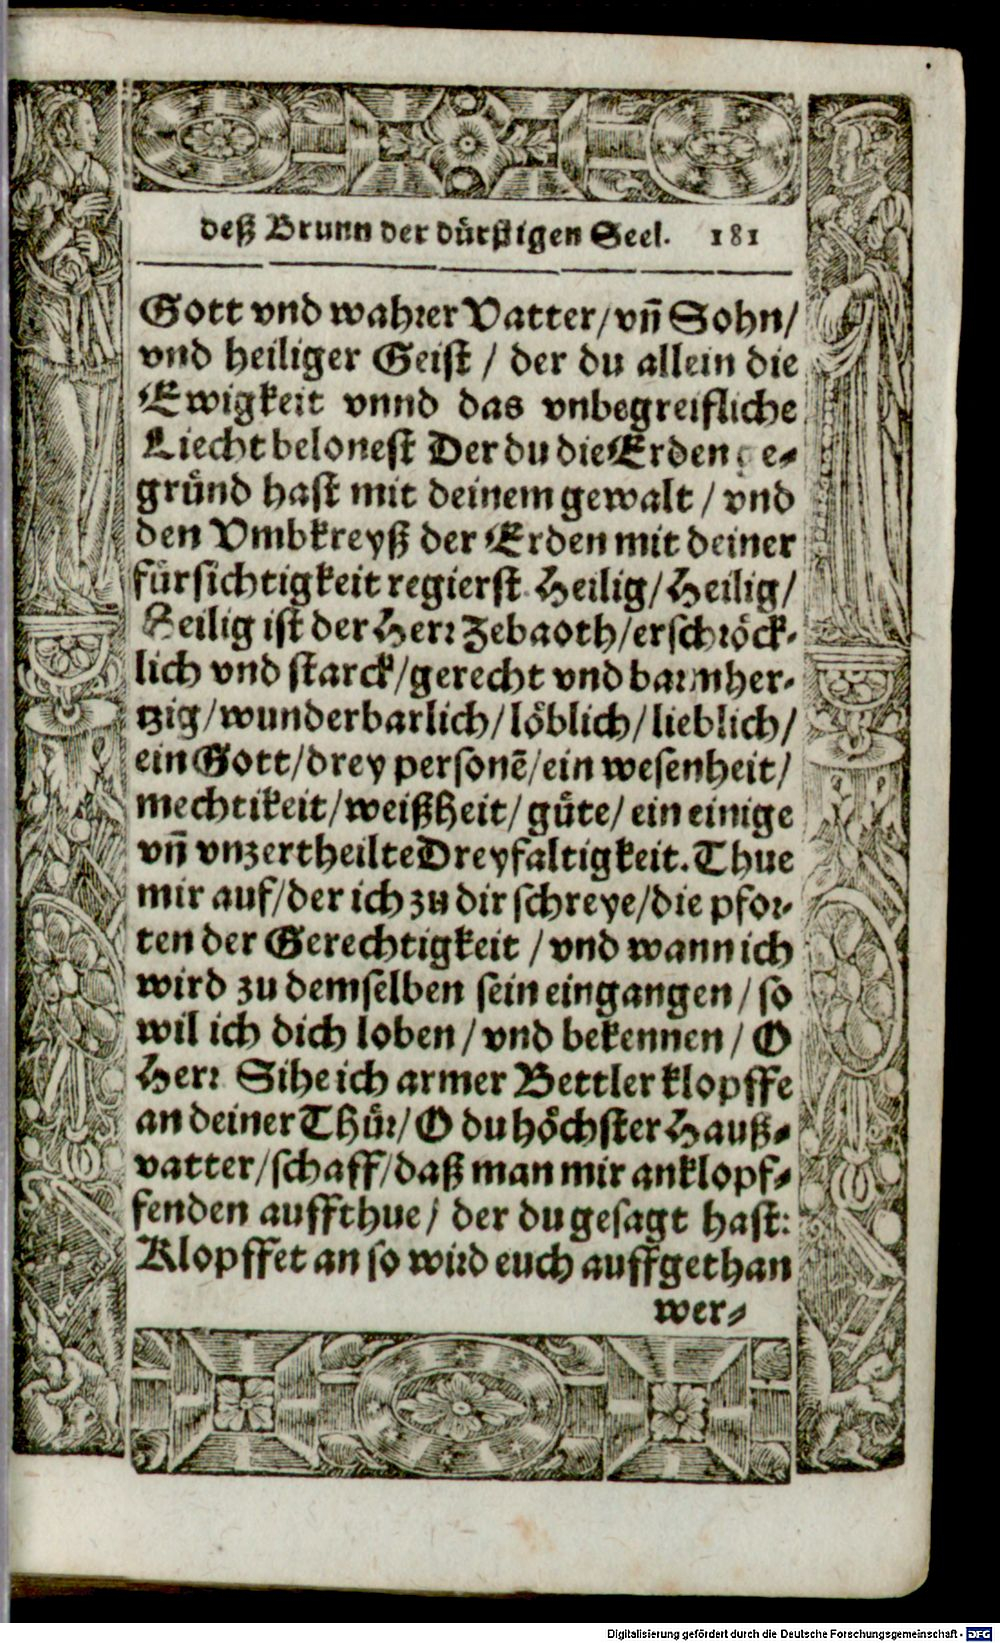 deß Brunn der dürstigen Seel. 181
Gott vnd wahrer Vatter/vñ Sohn/
vnd heiliger Geist / der du allein die
Ewigkeit vnnd das vnbegreifliche
Liecht belonest Der du die Erden ge-
gründ hast mit deinem gewalt / vnd
den Vmbkreyß der Erden mit deiner
fürsichtigkeit regierst. Heilig/Heilig/
Heilig ist der Herr Zebaoth/erschröck-
lich vnd starck/gerecht vnd barmher-
tzig/wunderbarlich/löblich/lieblich/
ein Gott/drey personē/ein wesenheit/
mechtikeit/weißheit/güte/ein einige
vñ vnzertheilte Dreyfaltigkeit. Thue
mir auf/der ich zu dir schreye/die pfor-
ten der Gerechtigkeit /vnd wann ich
wird zu demselben sein eingangen/so
wil ich dich loben /vnd bekennen/ O
Herr Sihe ich armer Bettler klopffe
an deiner Thür/O du höchster Hauß-
vatter/schaff/daß man mir anklopf-
fenden auffthue/ der du gesagt hast:
Klopffet an so wird euch auffgethan
wer-
Digitalisierung gefördert durch die Deutsche Forschungsgemeinschaft - DFG